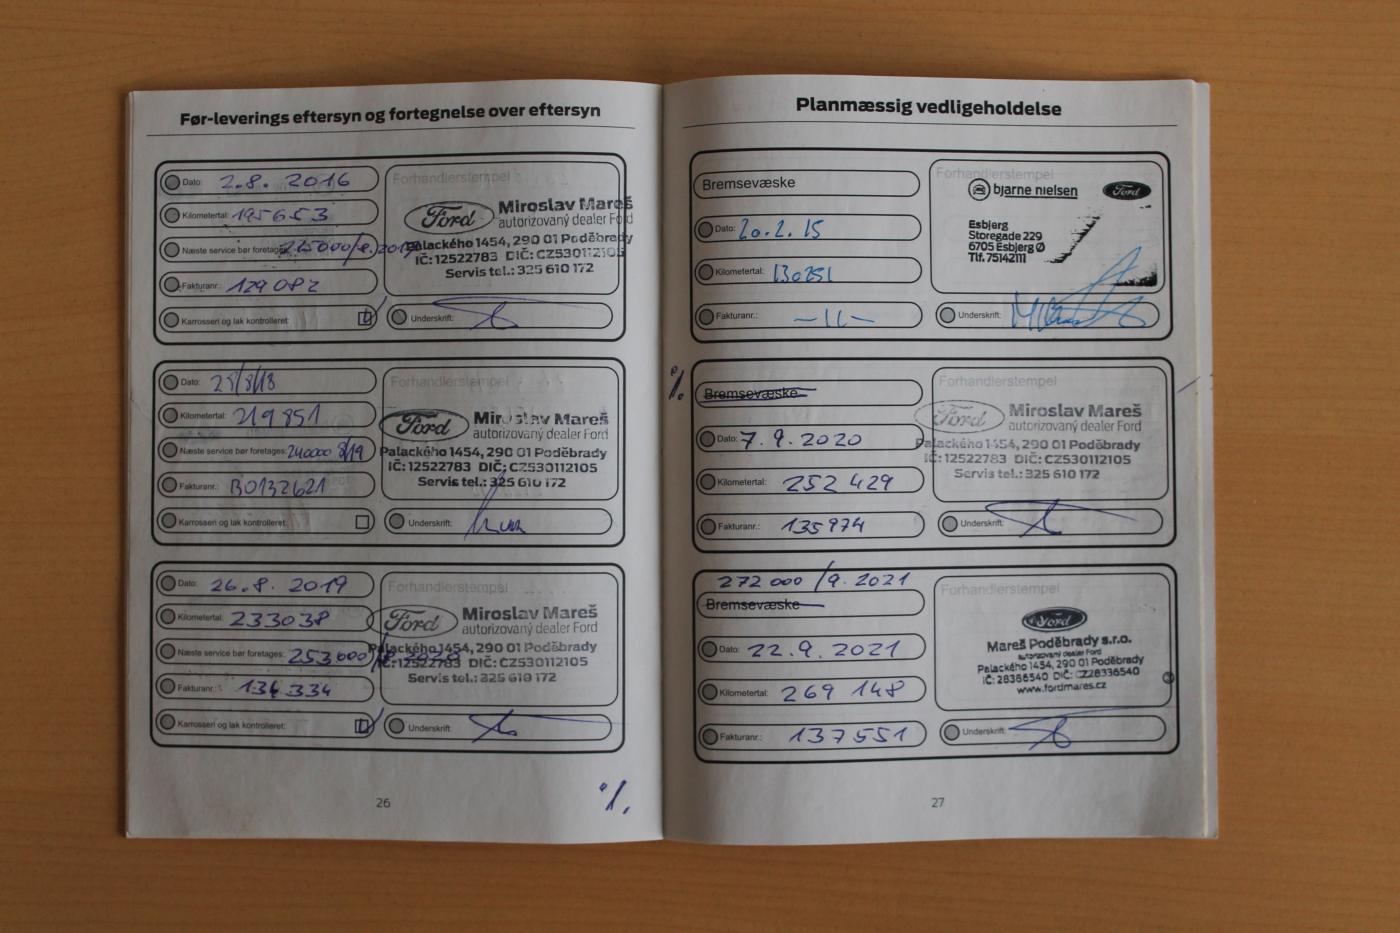 Før-leverings eftersyn og fortegnelse over eftersyn
Dato: 2.8. 2016
Kilometertal: 195653
Næste service bør foretages: 225000/8.2017
Fakturanr.: 129082
Karrosseri og lak kontrolleret:
Forhandlerstempel
Ford
Miroslav Mareš
autorizovaný dealer Ford
Palackého 1454, 290 01 Poděbrady
IČ: 12522783 DIČ: CZ530112105
Servis tel.: 325 610 172
Underskrift:
Dato: 28/8/18
Kilometertal: 219851
Næste service bør foretages: 240000 8/19
Fakturanr.: B0132621
Karrosseri og lak kontrolleret:
Forhandlerstempel
Ford
Miroslav Mareš
autorizovaný dealer Ford
Palackého 1454, 290 01 Poděbrady
IČ: 12522783 DIČ: CZ530112105
Servis tel.: 325 610 172
Underskrift:
Dato: 26.8. 2019
Kilometertal: 233038
Næste service bør foretages: 253000/8.2020
Fakturanr.: 134 334
Karrosseri og lak kontrolleret:
Forhandlerstempel
Ford
Miroslav Mareš
autorizovaný dealer Ford
Palackého 1454, 290 01 Poděbrady
IČ: 12522783 DIČ: CZ530112105
Servis tel.: 325 610 172
Underskrift:
26
Planmæssig vedligeholdelse
Bremsevæske
Dato: 20.2.15
Kilometertal: 130251
Fakturanr.: -11-
Forhandlerstempel
bjarne nielsen
Ford
Esbjerg
Storegade 229
6705 Esbjerg Ø
Tlf. 75142111
Underskrift:
Bremsevæske
Dato: 7.9.2020
Kilometertal: 252 429
Fakturanr.: 135974
Forhandlerstempel
Ford
Miroslav Mareš
autorizovaný dealer Ford
Palackého 1454, 290 01 Poděbrady
IČ: 12522783 DIČ: CZ530112105
Servis tel.: 325 610 172
Underskrift:
272 000 /9.2021
Bremsevæske
Dato: 22.9.2021
Kilometertal: 269 148
Fakturanr.: 137551
Forhandlerstempel
Ford
Mareš Poděbrady s.r.o.
autorizovaný dealer Ford
Palackého 1454, 290 01 Poděbrady
IČ: 28366540 DIČ: CZ28336540
www.fordmares.cz
Underskrift:
27